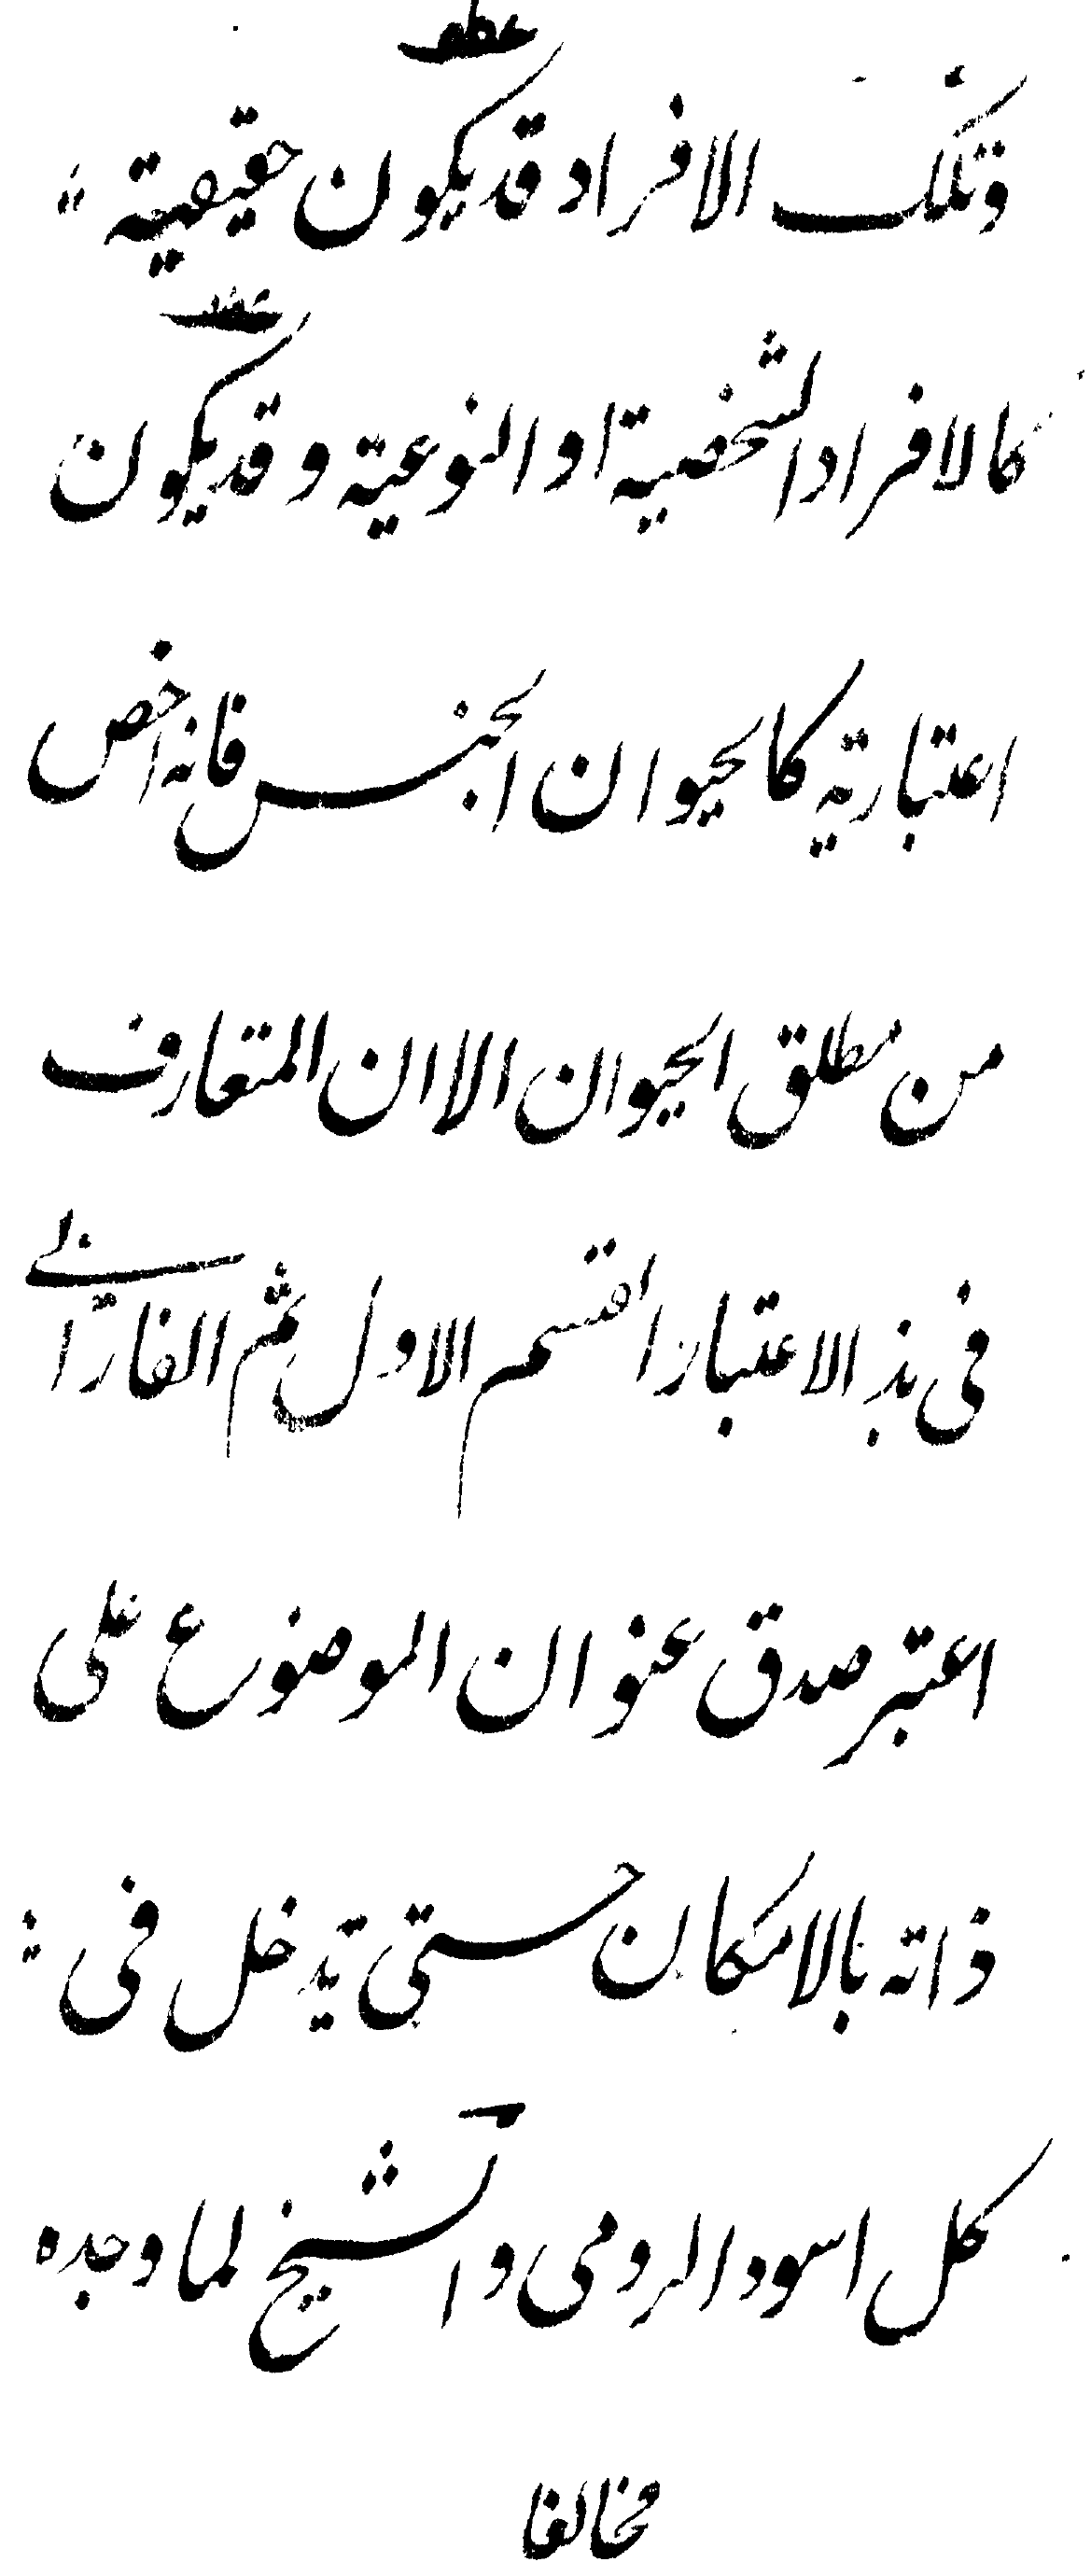 وتلك الافراد قد يكون حقيقية
كالافراد الشخصية او النوعية وقد يكون
اعتبارية كالحيوان الجنس فانه اخص
من مطلق الحيوان الا ان المتعارف
فى هذا الاعتبار القسم الاول ثم الفارابى
اعتبر صدق عنوان الموضوع على
ذاته بالامكان حتى يدخل فى
كل اسود الرومى والشيخ لما وجده
مخالفا